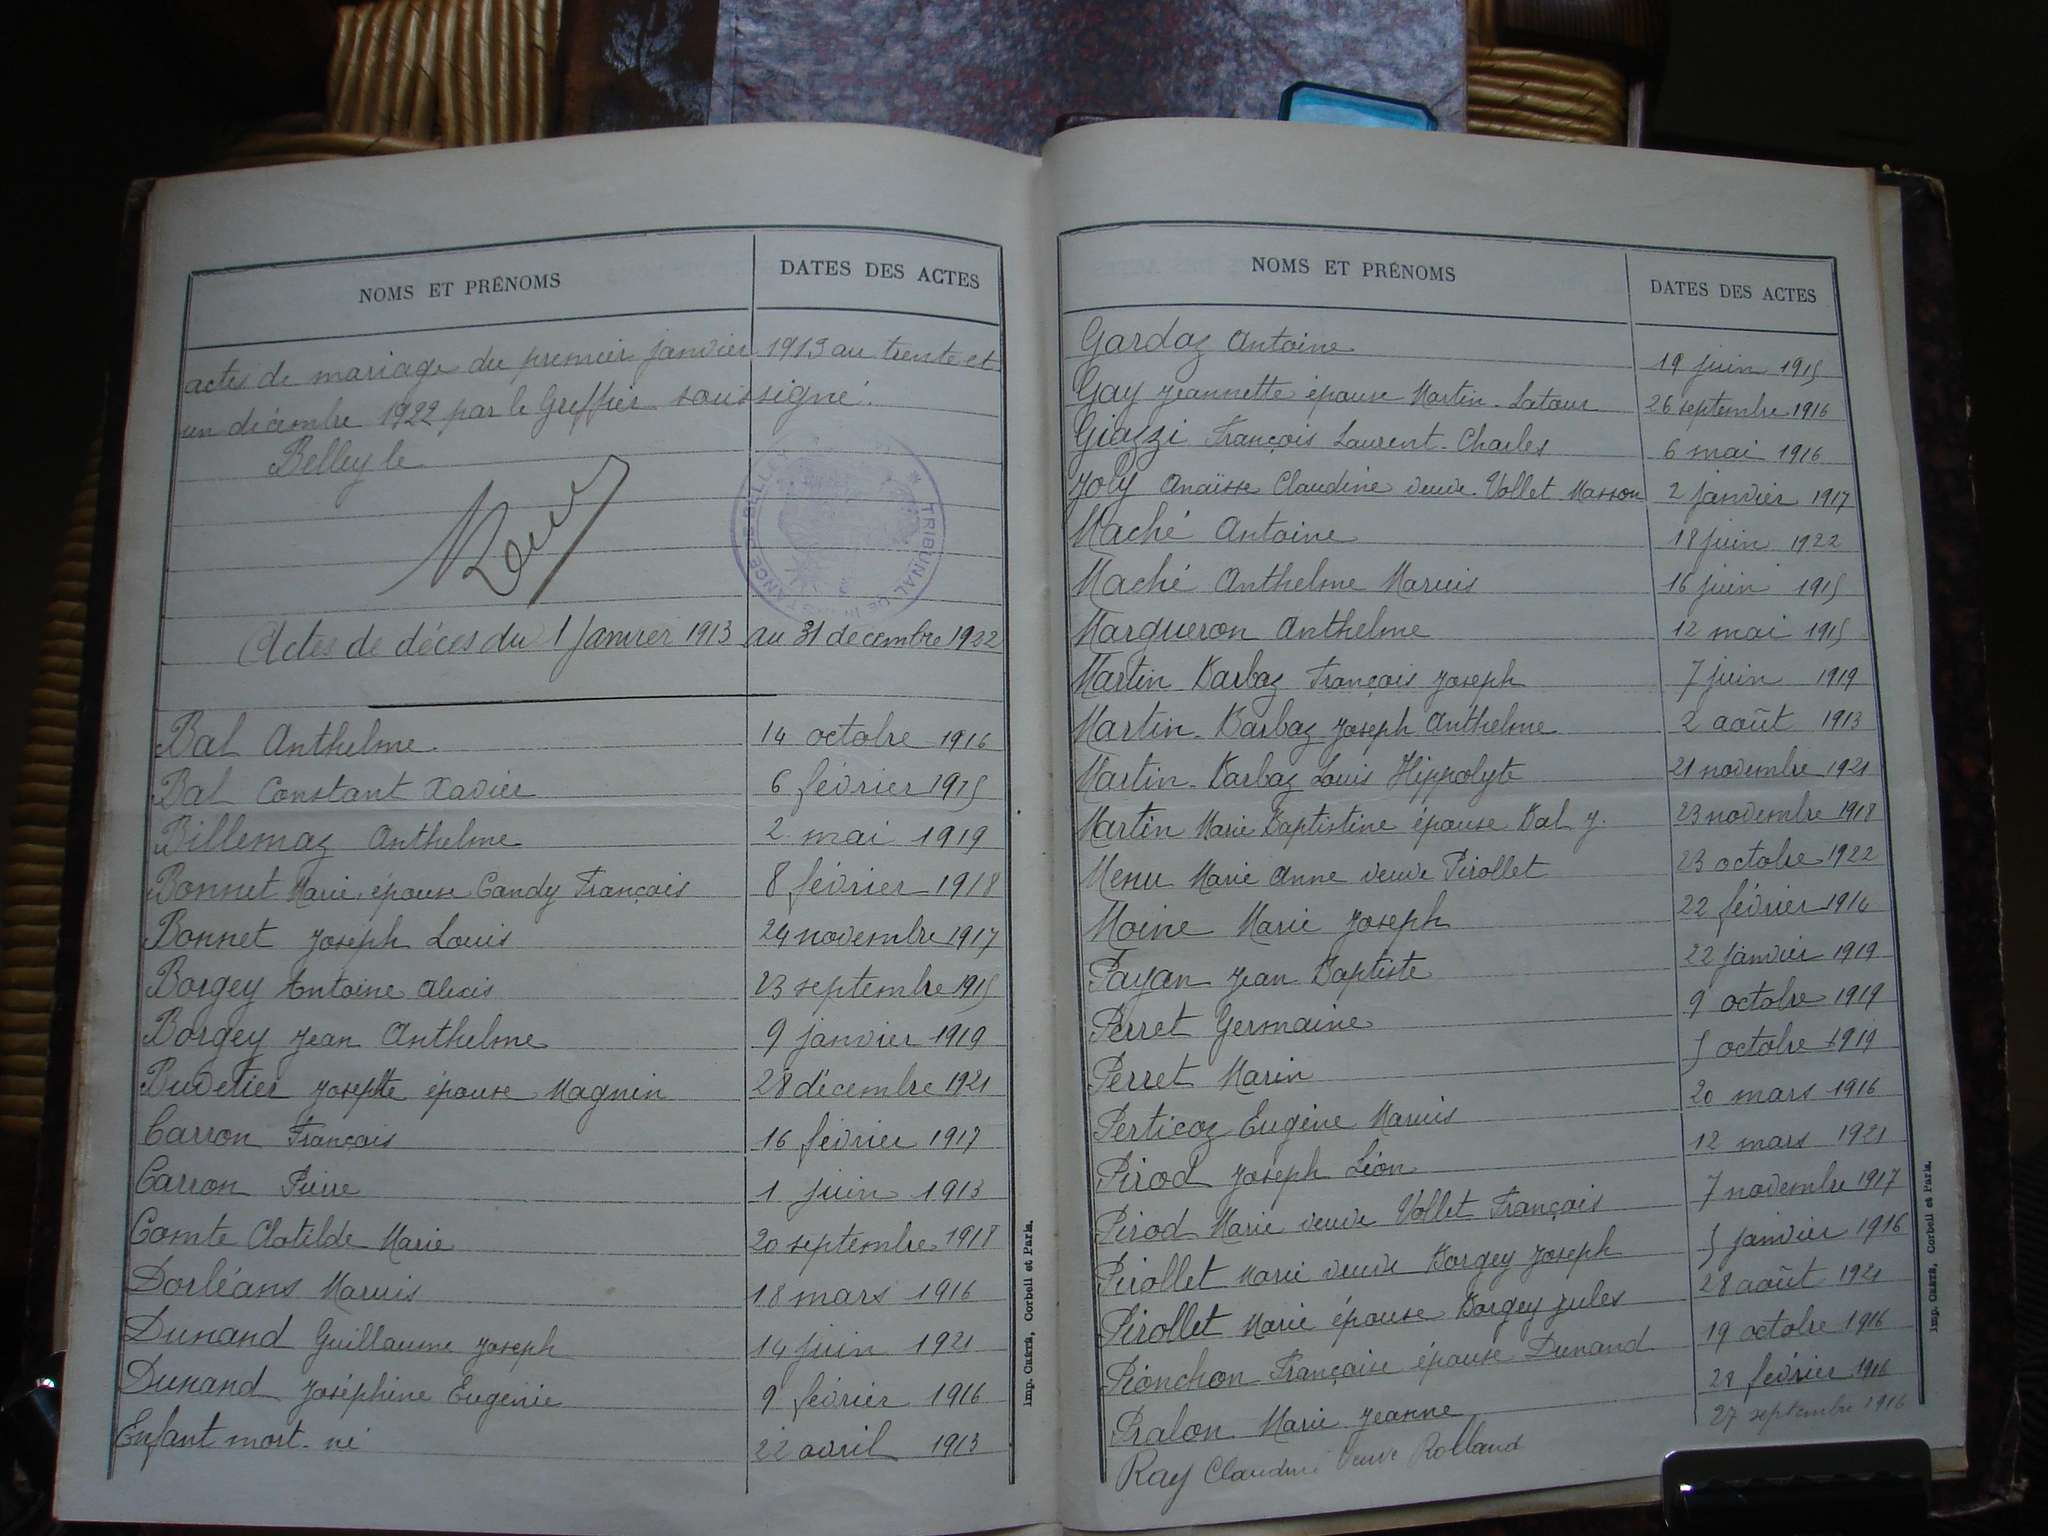 NOMS ET PRÉNOMS DATES DES ACTES
actes de mariage du premier janvier 1913 au trente et
un décembre 1922 par le Greffier soussigné.
Belley le
TRIBUNAL DE 1RE INSTANCE DE BELLEY
Actes de décès du 1 Janvier 1913 au 31 décembre 1922
Bal Anthelme 14 octobre 1916
Bal Constant Xavier 6 février 1915
Billemaz Anthelme 2 mai 1919
Bonnet Marie épouse Candy François 8 février 1918
Bonnet Joseph Louis 24 novembre 1917
Borgey Antoine Alexis 23 septembre 1915
Borgey Jean Anthelme 9 janvier 1919
Budetier Josephte épouse Magnin 28 décembre 1921
Carron François 16 février 1917
Carron Pierre 1 juin 1913
Comte Clotilde Marie 20 septembre 1918
Dorléans Marius 18 mars 1916
Dunand Guillaume Joseph 14 juin 1921
Dunand Joséphine Eugénie 9 février 1916
Enfant mort-né 22 avril 1913
Imp. Chaix, Corbeil et Paris.
NOMS ET PRÉNOMS DATES DES ACTES
Gardaz Antoine 19 juin 1915
Gay Jeannette épouse Martin-Latour 26 septembre 1916
Giazzi François Laurent-Charles 6 mai 1916
Joly Anaïsse Claudine veuve Vollet Masson 2 janvier 1917
Maché Antoine 18 juin 1922
Maché Anthelme Marius 16 juin 1915
Margueron Anthelme 12 mai 1915
Martin-Barbaz François Joseph 7 juin 1919
Martin-Barbaz Joseph Anthelme 2 août 1913
Martin-Barbaz Louis Hippolyte 21 novembre 1921
Martin Marie Baptistine épouse Bal J. 23 novembre 1918
Menu Marie Anne veuve Pirollet 23 octobre 1922
Moine Marie Joseph 22 février 1914
Payan Jean Baptiste 22 janvier 1919
Perret Germaine 9 octobre 1919
Perret Marin 5 octobre 1919
Perticoz Eugène Marius 20 mars 1916
Pirod Joseph Léon 12 mars 1921
Pirod Marie veuve Vollet François 7 novembre 1917
Pirollet Marie veuve Borgey Joseph 5 janvier 1916
Pirollet Marie épouse Borgey Jules 28 août 1921
Pionchon Françoise épouse Dunand 19 octobre 1916
Pralon Marie Jeanne 28 février 1916
Ray Claudine Veuve Rolland 27 septembre 1916
Corbeil et Paris.